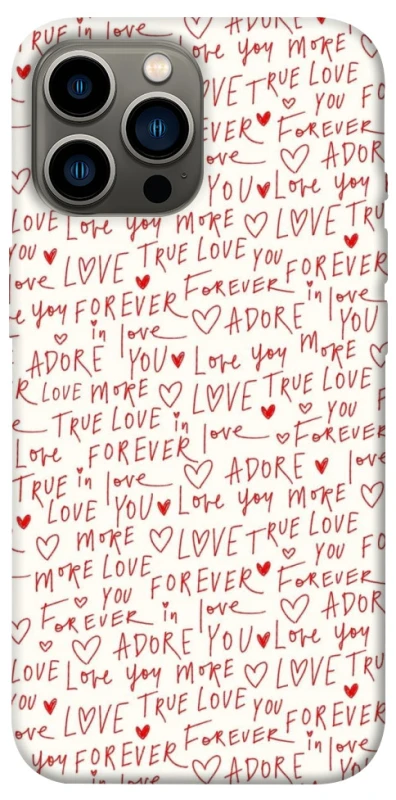 TRUE in love ADORE
Love you MORE
LOVE TRUE LOVE
YOU FO
EVER FOREVER
love ADOR
YOU Love you
LOVE Love you MORE LOVE TRU
YOU TRUE LOVE YOU FOREVER
love LOVE FOREVER in love
e you FOREVER ADORE YOU
in love
ADORE YOU Love you MORE
R LOVE MORE LOVE TRUE LOVE
e TRUE LOVE in love YOU
Love FOREVER FOREVER
TRUE in love ADORE love
LOVE YOU Love you MORE
MORE LOVE TRUE LOVE
MORE LOVE YOU FO
YOU FOREVER FOREVER
FOREVER in love ADOR
ADORE YOU Love you
LOVE Love you MORE LOVE TRU
YOU TRUE LOVE YOU FOREVER
love LOVE FOREVER in love
you FOREVER ADORE YOU
in love